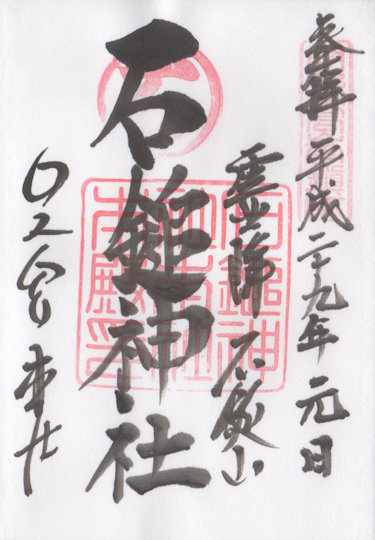 奉拝 平成二十九年 元日
霊峰 石鎚山
石鎚神社
口之宮 本社